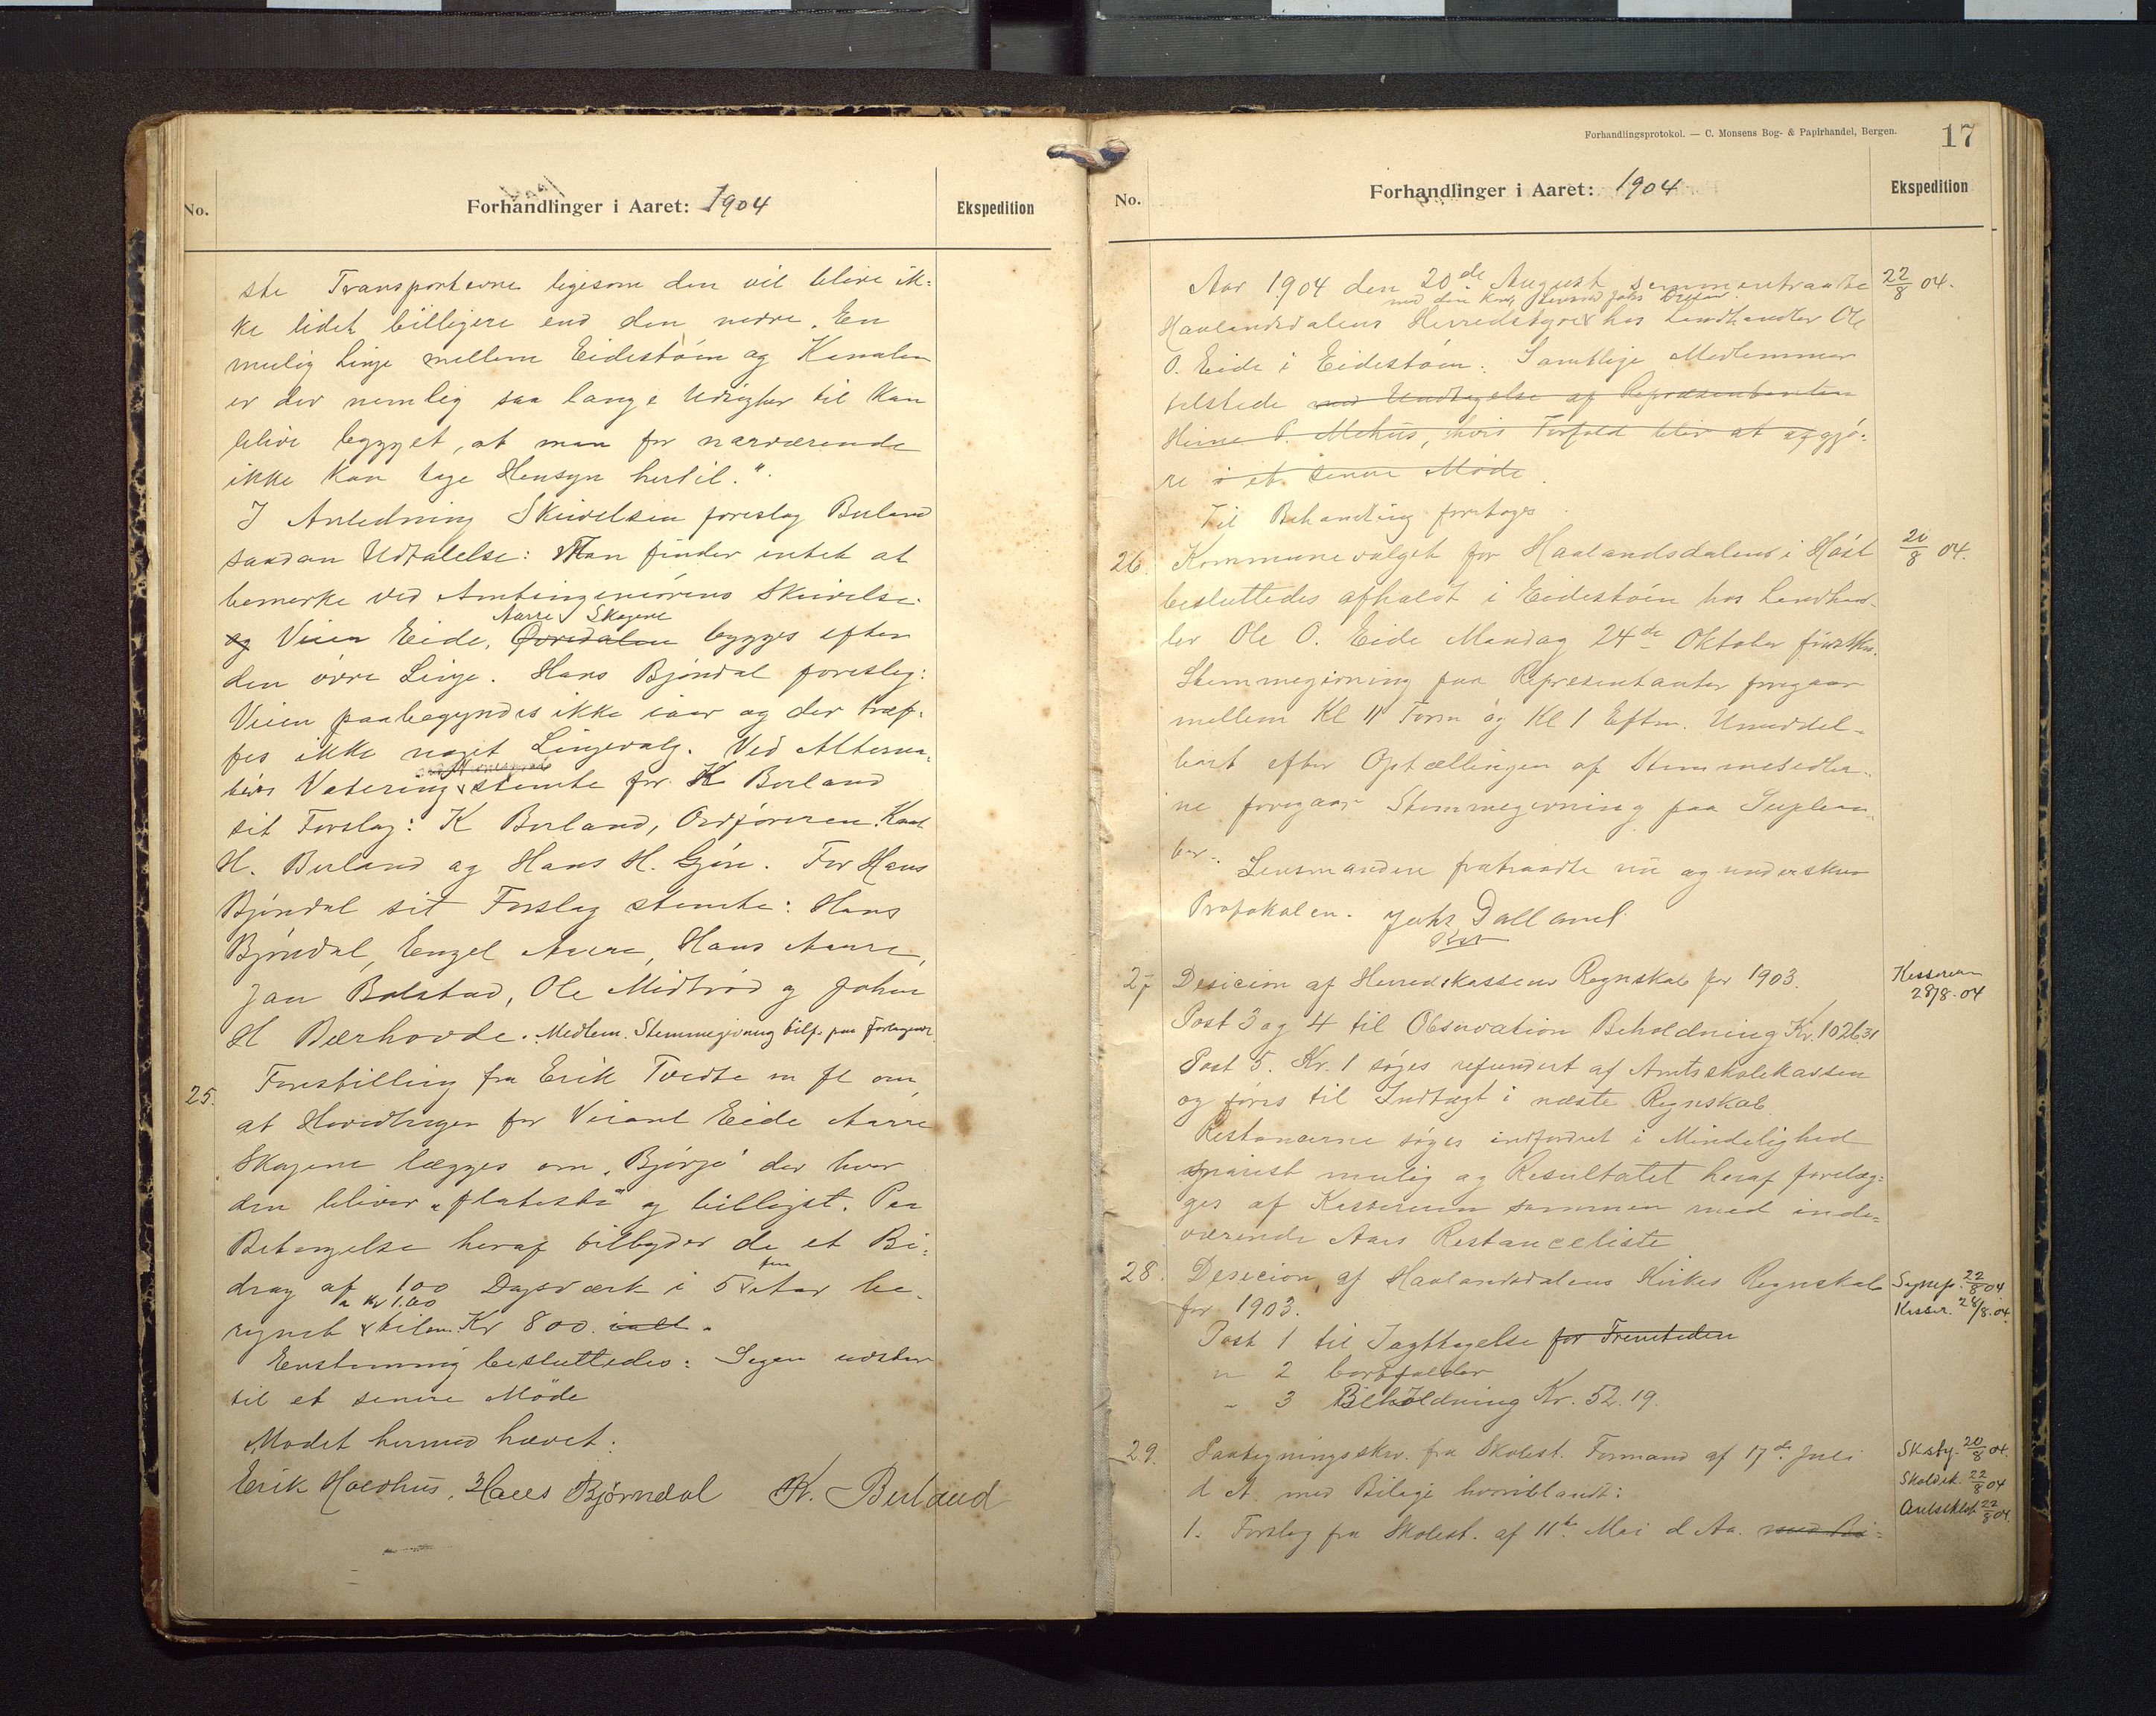 No.
Forhandlinger i Aaret: 1904
Ekspedition
ste Transporterne ligesom den vil blive ik-
ke lidet billigere end den nedre. En
mulig Linje mellem Eidestøen og Kanalen
er der nemlig saa lange Udsigter til kan
blive bygget, at man for nærværende
ikke kan tage Hensyn hertil."
I Anledning Skrivelsen foreslog Berland
saadan Udtalelse: Man finder intet at
bemerke ved Amtsingeniørens Skrivelse
Aarre Skagene
og Veien Eide, Øvredalen bygges efter
den øvre Linje. Hans Bjøndal foreslog:
Veien paabegyndes ikke iaar og der træf-
fes ikke noget Linjevalg. Ved Alterna-
tiv Votering stemte for K Berland
sit Forslag: K Berland, Ordføreren, Knut
H. Berland og Hans H. Gjøn. For Hans
Bjøndal sit Forslag stemte: Hans
Bjøndal, Engel Aarre, Hans Aarre,
Jan Bolstad, Ole Midtrød og Johan
H Bærhovde. Medlem. Stemmegivning tilf. paa Forlagener
25. Forestilling fra Erik Tvedte m fl om
at Hovedlinjen for Veianl Eide Aarre
Skagene lægges om "Bjørge" der hvor
den bliver "flateste" og billigst. Paa
Betingelse heraf tilbyder de et Bi-
drag af 100 Dagsværk i 5 fem Aar be-
a Kr 1,60
regnet tilsm. Kr 800. ialt.
Enstemmig besluttedes: Sagen udstaar
til et senere Møde
Mødet hermed hævet.
Erik Hoedhus, Hans Bjørndal K. Berland
Forhandlingsprotokol. — C. Monsens Bog- & Papirhandel, Bergen.
17
No.
Forhandlinger i Aaret: 1904
Ekspedition
Aar 1904 den 20de August sammentraadte 22/8 04.
med den Kst. Lensmd Johs Dalland
Haalandsdalens Herredstyre hos Landhandler Ole
O. Eide i Eidestøen. Samtlige Medlemmer
tilstede med Undtagelse af Repræsentanten
Heine P. Mehus, hvis Forfald blir at afgjø-
re i et senere Møde.
Til Behandling foretoges
26. Kommunevalget for Haalandsdalen i Høst 20/8 04.
besluttedes afholdt i Eidestøen hos Landhand-
ler Ole O. Eide Mandag 24de Oktober førstk.
Stemmegivning paa Repræsentanter foregaar
mellem Kl 11 Form og Kl 1 Eftm. Umiddel-
bart efter Optællingen af Stemmesedler-
ne foregaar Stemmegivning paa Suplean-
ter.
Lensmanden fratraadte nu og underskrev
Protokolen. Johs Dalland
Kst
27 Desicion af Herredskassens Regnskab for 1903. Kassereren
28/8.04
Post 3 og 4 til Observation Beholdning Kr. 1026.31
Post 5. Kr. 1 søges refundert af Amtsskolekassen
og føres til Indtægt i næste Regnskab.
Restancerne søges indfordret i Mindelighed
snarest mulig og Resultatet heraf forelæg-
ges af Kassereren sammen med inde-
værende Aars Restanceliste
28. Desicion af Haalandsdalens Kirkes Regnskab Sognep. 22/8 04
for 1903. Kasser. 28/8.04
Post 1 til Iagttagelse for Fremtiden
" 2 bortfalder
" 3 Beholdning Kr. 52.19.
29. Paategningsskr. fra Skolest. Formand af 17de Juli Sksty. 20/8 04.
d A med Bilage hvoriblandt: Skoldik. 22/8 04
1. Forslag fra Skolest. af 11te Mai d Aa. med Bi- 22/8 04